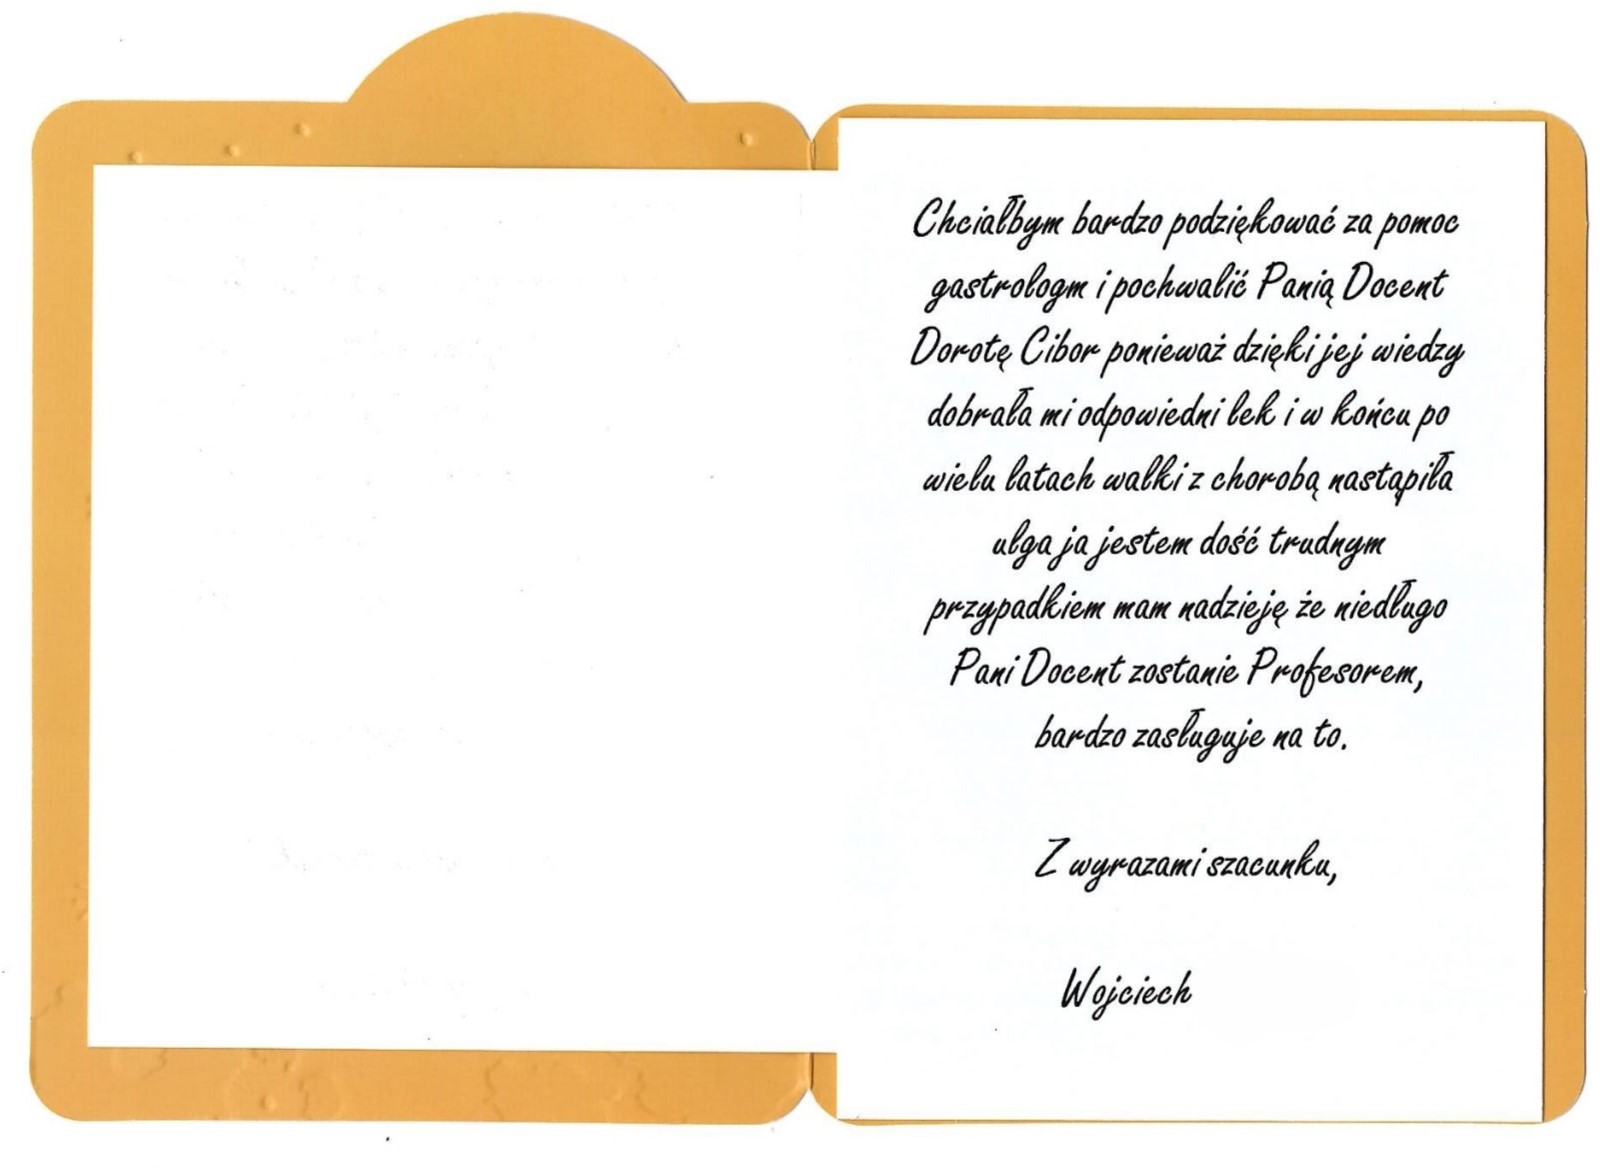 Chciałbym bardzo podziękować za pomoc
gastrologm i pochwalić Panią Docent
Dorotę Cibor ponieważ dzięki jej wiedzy
dobrała mi odpowiedni lek i w końcu po
wielu latach walki z chorobą nastąpiła
ulga ja jestem dość trudnym
przypadkiem mam nadzieję że niedługo
Pani Docent zostanie Profesorem,
bardzo zasługuje na to.
Z wyrazami szacunku,
Wojciech